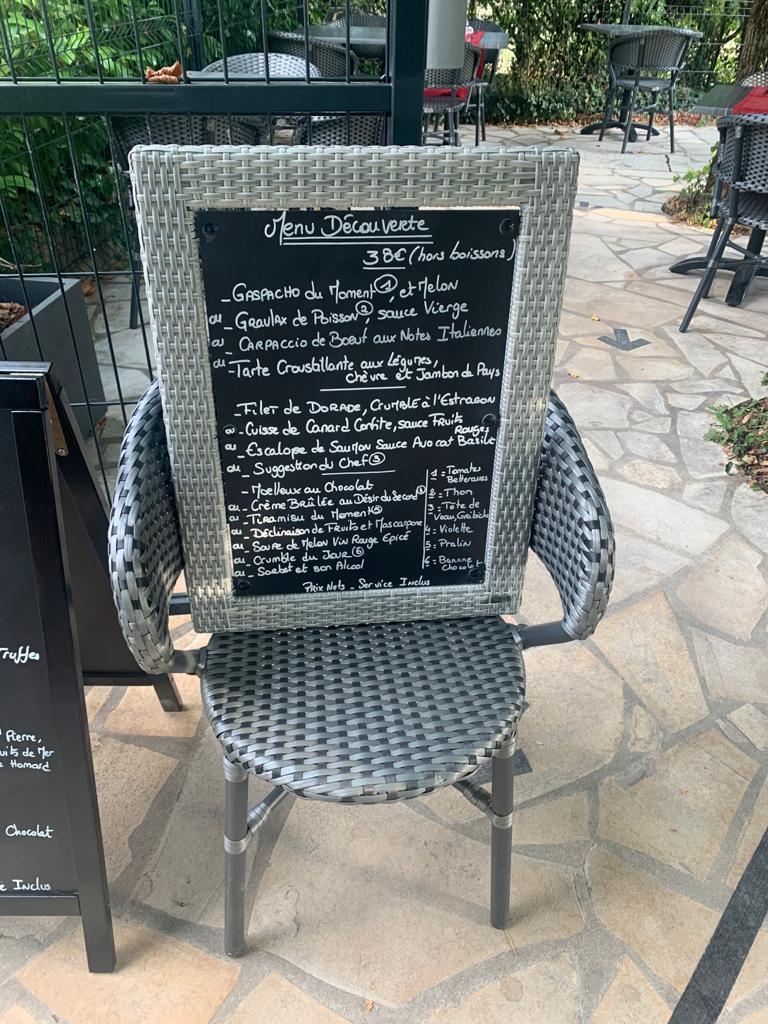 Menu Découverte
38€ (hors boissons)
_ Gaspacho du Moment ①, et Melon
ou _ Gravlax de Poisson ②, sauce Vierge
ou _ Carpaccio de Boeuf aux Notes Italiennes
ou _ Tarte Croustillante aux Légumes,
Chèvre et Jambon de Pays
_ Filet de Dorade, Crumble à l'Estragon
ou _ Cuisse de Canard Confite, sauce Fruits
Rouges
ou _ Escalope de Saumon Sauce Avocat Basilic
ou _ Suggestion du Chef ③
_ Moelleux au Chocolat
ou _ Crème Brûlée au Désir du Second ④
ou _ Tiramisu du Moment ⑤
ou _ Déclinaison de Fruits et Mascarpone
ou _ Soupe de Melon Vin Rouge Epicé
ou _ Crumble du Jour ⑥
ou _ Sorbet et son Alcool
1 = Tomates
Betteraves
2 = Thon
3 = Tête de
Veau, Gribiche
4 = Violette
5 = Pralin
6 = Banane
Chocolat
Prix Nets _ Service Inclus
Truffes
Pierre,
uits de Mer
Homard
Chocolat
e Inclus